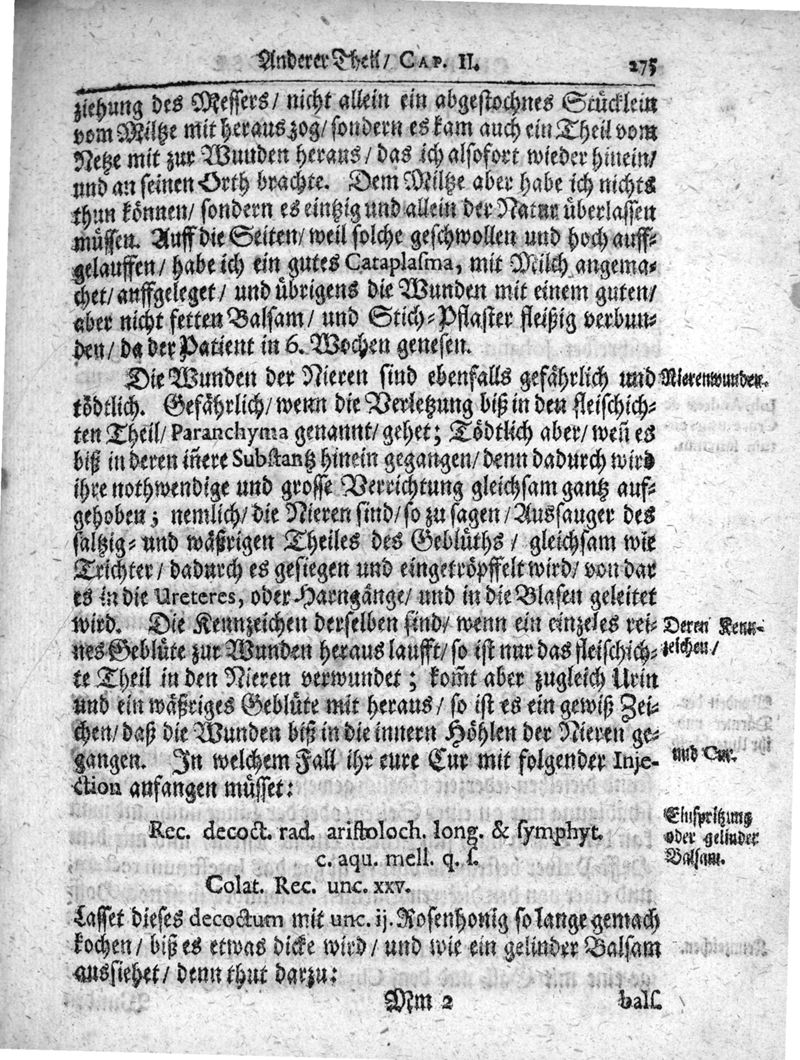 Anderer Theil/ CAP. II. 275
ziehung des Messers/ nicht allein ein abgestochnes Stücklein
vom Miltze mit heraus zog/ sondern es kam auch ein Theil vom
Netze mit zur Wunden heraus/ das ich alsofort wieder hinein/
und an seinen Orth brachte. Dem Miltze aber habe ich nichts
thun können/ sondern es eintzig und allein der Natur überlassen
müssen. Auff die Seiten/ weil solche geschwollen und hoch auff-
gelauffen/ habe ich ein gutes Cataplasma, mit Milch angema-
chet/ auffgeleget/ und übrigens die Wunden mit einem guten/
aber nicht fetten Balsam/ und Stich-Pflaster fleißig verbun-
den/ da der Patient in 6. Wochen genesen.
Die Wunden der Nieren sind ebenfalls gefährlich und
Nierenwunden.
tödtlich. Gefährlich/ wenn die Verletzung biß in den fleischich-
ten Theil/ Paranchyma genannt/ gehet; Tödtlich aber/ weñ es
biß in deren iñere Substantz hinein gegangen/ denn dadurch wird
ihre nothwendige und grosse Verrichtung gleichsam gantz auf-
gehoben; nemlich/ die Nieren sind/ so zu sagen/ Aussauger des
saltzig- und wäßrigen Theiles des Geblüths/ gleichsam wie
Trichter/ dadurch es gesiegen und eingetröpffelt wird/ von dar
es in die Ureteres, oder Harngänge/ und in die Blasen geleitet
wird. Die Kennzeichen derselben sind/ wenn ein einzeles rei-
Deren Kenn-
nes Geblüte zur Wunden heraus laufft/ so ist nur das fleischich-
zeichen/
te Theil in den Nieren verwundet; kom̃t aber zugleich Urin
und ein wäßriges Geblüte mit heraus/ so ist es ein gewiß Zei-
chen/ daß die Wunden biß in die innern Höhlen der Nieren ge-
gangen. In welchem Fall ihr eure Cur mit folgender Inje-
und Cur.
ction anfangen müsset:
Rec. decoct. rad. aristoloch. long. & symphyt.
c. aqu. mell. q. s.
Colat. Rec. unc. xxv.
Einspritzung
oder gelinder
Balsam.
Lasset dieses decoctum mit unc. ij. Rosenhonig so lange gemach
kochen/ biß es etwas dicke wird/ und wie ein gelinder Balsam
aussiehet/ denn thut darzu:
Mm 2 bals.